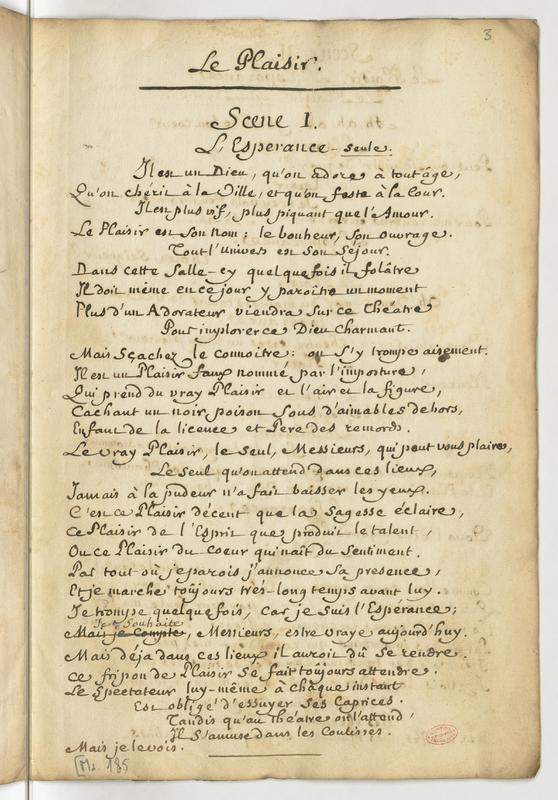 3
Le Plaisir.
Scene I.
L'Esperance seule.
Il est un Dieu, qu'on adore à tout âge,
Qu'on chérit à la Ville, et qu'on feste à la Cour.
Il en plus vif, plus piquant que l'Amour.
Le Plaisir est son nom: le bonheur, son ouvrage.
Tout l'Univers est son séjour.
Dans cette Salle-cy quelquefois il folâtre
Il doit même en ce jour y paroître un moment
Plus d'un Adorateur viendra sur ce Théatre
Pour implorer ce Dieu charmant.
Mais sçachez le connoitre: on s'y trompe aisement.
Il est un Plaisir faux nommé par l'imposture,
Qui prend du vray Plaisir et l'air et la figure,
Cachant un noir poison sous d'aimables dehors,
Enfant de la licence et Pere des remords.
Le vray Plaisir, le seul, Messieurs, qui peut vous plaire,
Le seul qu'on attend dans ces lieux,
Jamais à la pudeur n'a fait baisser les yeux.
C'est ce Plaisir décent que la Sagesse éclaire,
Ce Plaisir de l'Esprit que produit le talent,
Ou ce Plaisir du Coeur qui naît du Sentiment.
Par tout où je parois j'annonce sa presence,
Et je marche toûjours trés-long temps avant luy.
Je trompe quelquefois, car je suis l'Esperance;
Je souhaite
Mais je Compte, Messieurs, estre vraye aujourd'huy.
Mais déja dans ces lieux il auroit dû se rendre.
Ce fripon de Plaisir se fait toûjours attendre.
Le Spectateur luy-même à chaque instant
Est obligé d'essuyer ses Caprices.
Tandis qu'au théatre on l'attend,
Il s'amuse dans les Coulisses.
Mais je le vois.
[Ms. 185